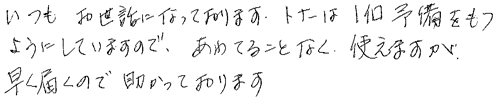 いつも お世話になっております. トナーは 1個 予備をもつ
ようにしていますので、あわてることなく. 使えますが.
早く届くので 助かっております